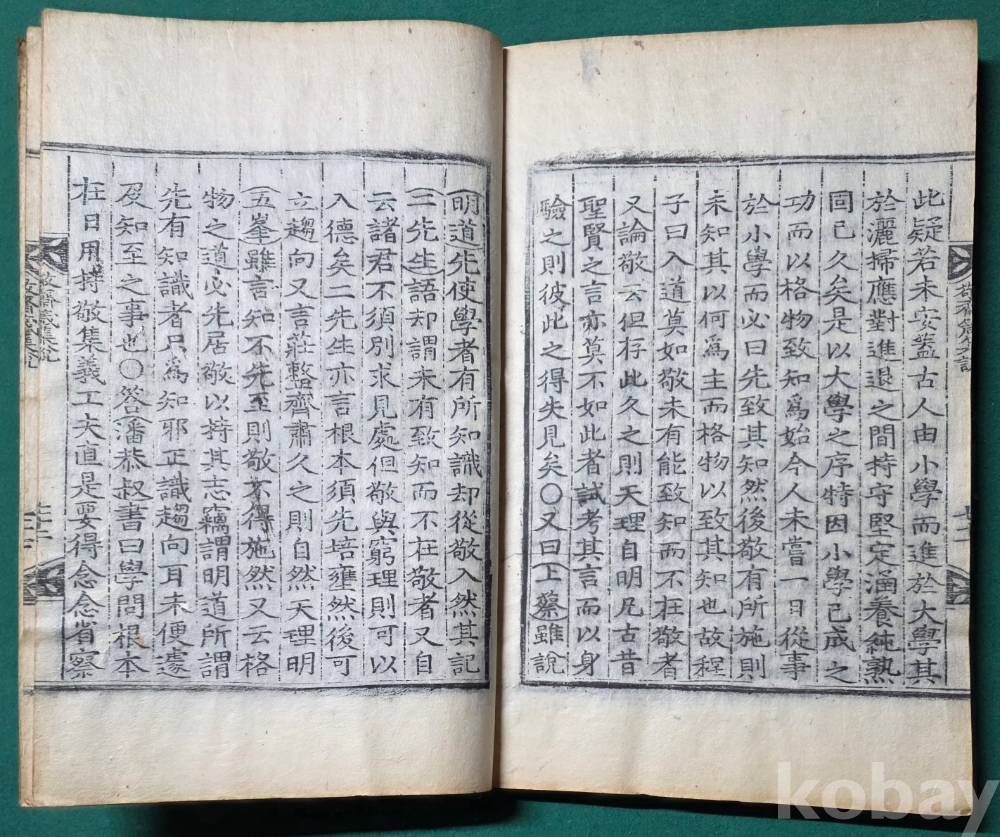 此疑若未安蓋古人由小學而進於大學其
於灑掃應對進退之間持守堅定涵養純熟
固已久矣是以大學之序特因小學已成之
功而以格物致知爲始今人未嘗一日從事
於小學而必曰先致其知然後敬有所施則
未知其以何爲主而格物以致其知也故程
子曰入道莫如敬未有能致知而不在敬者
又論敬云但存此久之則天理自明凡古昔
聖賢之言亦莫不如此者試考其言而以身
驗之則彼此之得失見矣〇又曰上蔡雖說
明道先使學者有所知識却從敬入然其記
二先生語却謂未有致知而不在敬者又自
云諸君不須別求見處但敬與窮理則可以
入德矣二先生亦言根本須先培壅然後可
立趨向又言莊整齊肅久之則自然天理明
五峯雖言知不先至則敬不得施然又云格
物之道必先居敬以持其志竊謂明道所謂
先有知識者只爲知邪正識趨向耳未便遽
及知至之事也〇答潘恭叔書曰學問根本
在日用持敬集義工夫直是要得念念省察
敬齋箴集說
kobay